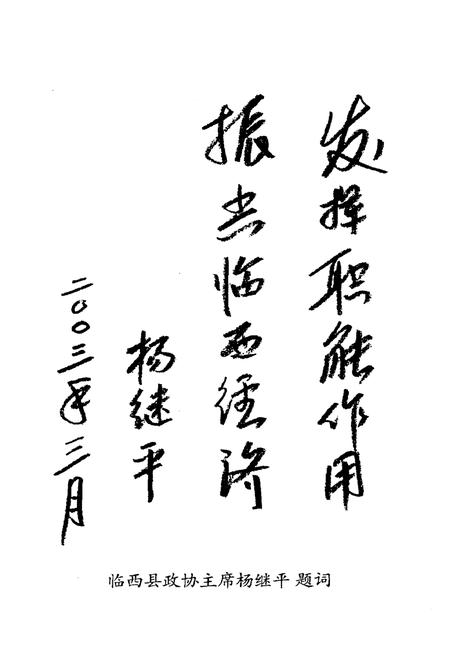 发挥职能作用
振兴临西经济
杨继平
二〇〇三年三月
临西县政协主席杨继平 题词